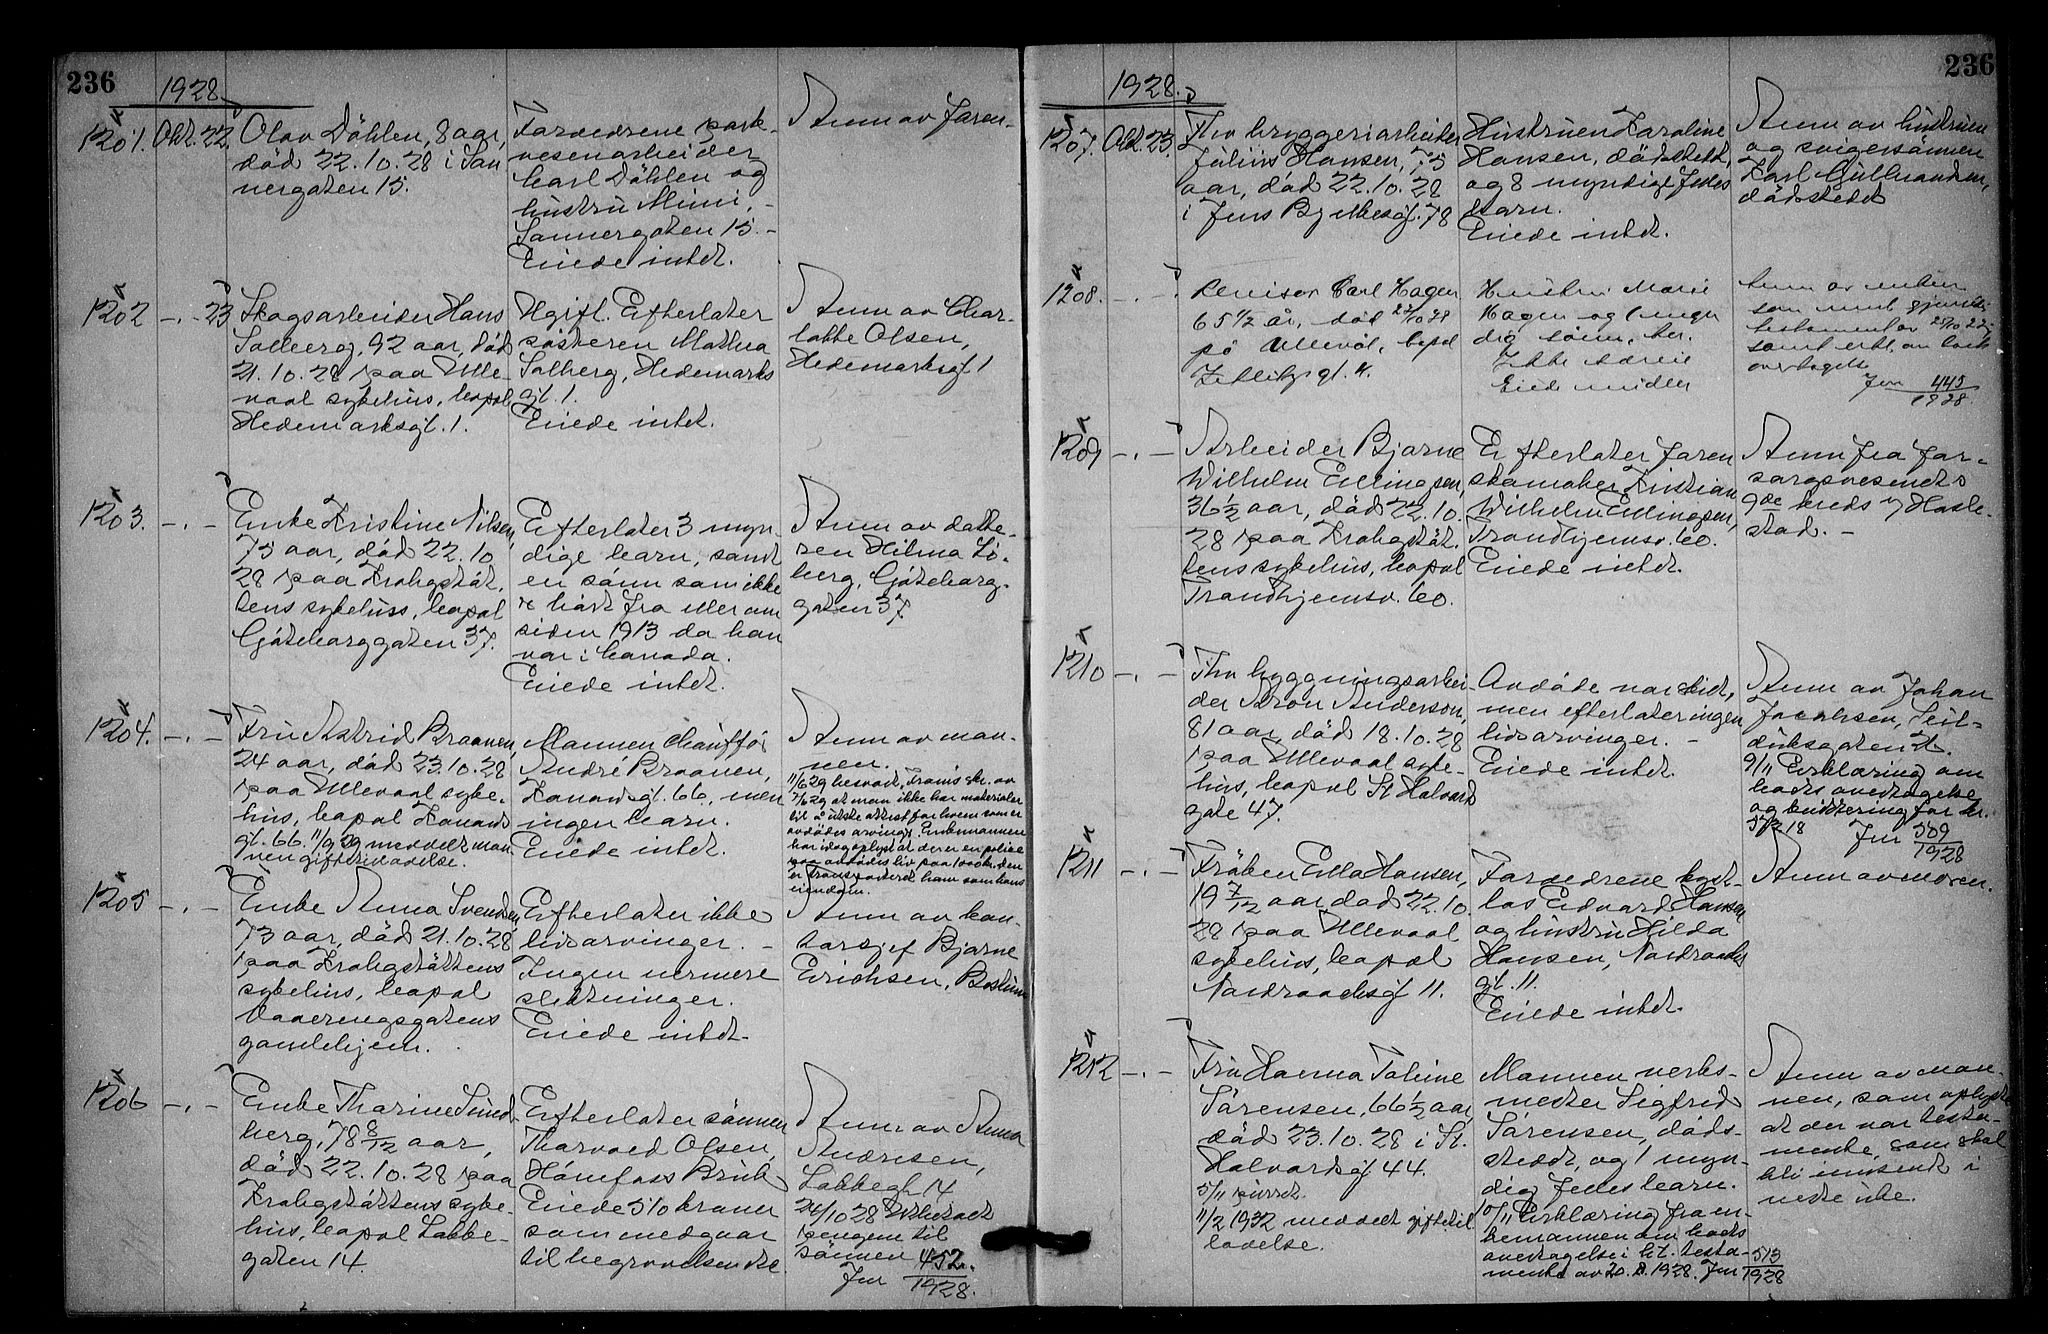 236
1928.
1201. Okt. 22.
Olav Döhlen, 8 aar,
död 22.10.28 i San
nergaten 15.
Forældrene park-
vesenarbeider
Carl Döhlen og
hustru Mimi,
Sannergaten 15.-
Eiede intet.
Anm av faren.
1202 -.- 23
Skogsarbeider Hans
Solberg, 92 aar, död
21.10.28 paa Ulle-
vaal sykehus, bopæl
Hedemarksgt. 1.
Ugift. Efterlater
søsteren Mathea
Solberg, Hedemarks
gt. 1.
Eiede intet.
Anm av Char-
lotte Olsen,
Hedemarksgt 1
1203. -.-
Enke Kristine Nilsen,
75 aar, död 22.10
28 paa Krohgstöt.
tens sykehus, bopæl
Göteborggaten 37.
Efterlater 3 myn
dige barn, samt
en sönn som ikke
er hört fra eller om
siden 1913 da han
var i Canada.
Eiede intet.
Anm av datte-
ren Hilma Lö-
berg, Göteborg-
gaten 37
1204. -.-
Fru Astrid Braanen,
24 aar, död 23.10.28
paa Ullevaal syke-
hus, bopæl
gt. 66. 11/9 29 meddelt man
nen giftetilladelse.
Mannen chauffør
André Braanen,
gt. 66, men
ingen barn.
Eiede intet.
Anm av man-
nen.
11/6 29 skr. av
7/6 29 at man ikke har materialer
til å utste attest for hvem som er
avdødes arvinger. Enkemannen
har idag oplyst at der er en police
paa avdødes liv paa 1000 kr. den
er transporteret ham som hans
eiendom.
1205 -.-
Enke Anna Svendsen,
73 aar, död 21.10.28
paa Krohgstöttens
sykehus, bopæl
Vaalerengsgatens
gamlehjem.
Efterlater ikke
livsarvinger. -
Ingen nermere
slektninger.
Eiede intet.
Anm av kon-
torsjef Bjarne
Erichsen,
1206 -.-
Enke Thorine Sund
berg, 78 8/12 aar,
död 22.10.28 paa
Krohgstöttens syke-
hus, bopæl Lakke-
gaten 14.
Efterlater sönnen
Thorvald Olsen,
Hönefoss Bruk
Eiede 510 kroner
som medgaar
til begravelsen
Anm. av Anna
Andresen,
Lakkegt 14
26/10 28 Utbetalt
pengene til
sönnen
Jnr 452./1928.
236
1928.
1207. Okt. 23.
Fhv bryggeriarbeider
Julius Hansen, 75
aar, död 22.10.28
i Jens Bjelkesgt. 78
Hustruen Karoline
Hansen, dödsstedet,
og 8 myndige fælles
barn.
Eiede intet.
Anm av hustruen
og svigersönnen
Karl Gulbrandsen,
dödsstedet
1208. -.-
Revisor Carl Hagen
65 1/2 år, död 22/10 28
på Ullevål, bopæl
Zetlitz gt. 4.
Hustru Marie
Hagen og 1 myn
dig sönn,
Eied midler
Anm av enken
som medt gjensidig
testament av 25/10 22
samt erkl. om boets
overtagelse
Jnr 445/1928.
1209 -.-
Arbeider Bjarne
Wilhelm Ellingsen,
36 1/2 aar, död 22.10.
28 paa Krohgstöt.
tens sykehus, bopæl
Trondhjemsv. 60.
Efterlater faren
skomaker Kristian
Wilhelm Ellingsen,
Trondhjemsv. 60.
Eiede intet.
Anm fra for-
sorgsvesenets
9de kreds v/ Hasle-
stad. -
1210 -.-
Fhv bygningsarbei-
der Aron Anderson,
81 aar, död 18.10.28
paa Ullevaal syke-
hus, bopæl St Halvards
gate 47.
Avdöde var skilt,
men efterlater ingen
livsarvinger. -
Eiede intet.
Anm av Johan
Jacobsen, Seil-
duksgaten
9/11 Erklæring om
boets overtagelse
og kvittering for kr.
57218 Jnr 509/1928
1211 -.-
Fröken Ella Hansen,
19 7/12 aar, död 22.10.
28 paa Ullevaal
sykehus, bopæl
Nordraachsgt 11.
Forældrene
Edvard Hansen
og hustru Hilda
Hansen, Nordraachs
gt. 11.
Eiede intet.
Anm av moren.
1212 -.-
Fru Hanna Toline
Sörensen, 66 1/2 aar,
död 23.10.28 i St.
Halvardsgt 44.
5/11 purret.
11/2 1932 meddelt giftetil
ladelse.
Mannen verks-
mester Sigfred
Sörensen, döds-
stedet, og 1 myn-
dig fælles barn.
10/11 Erklæring fra en-
kemannen om boets
overtagelse i h.t. testa-
mente av 20.8.1928. Jnr 513/1928
Anm av man-
nen, som oplyste
at der var testa-
mente, som skal
bli innsendt i
neste uke.